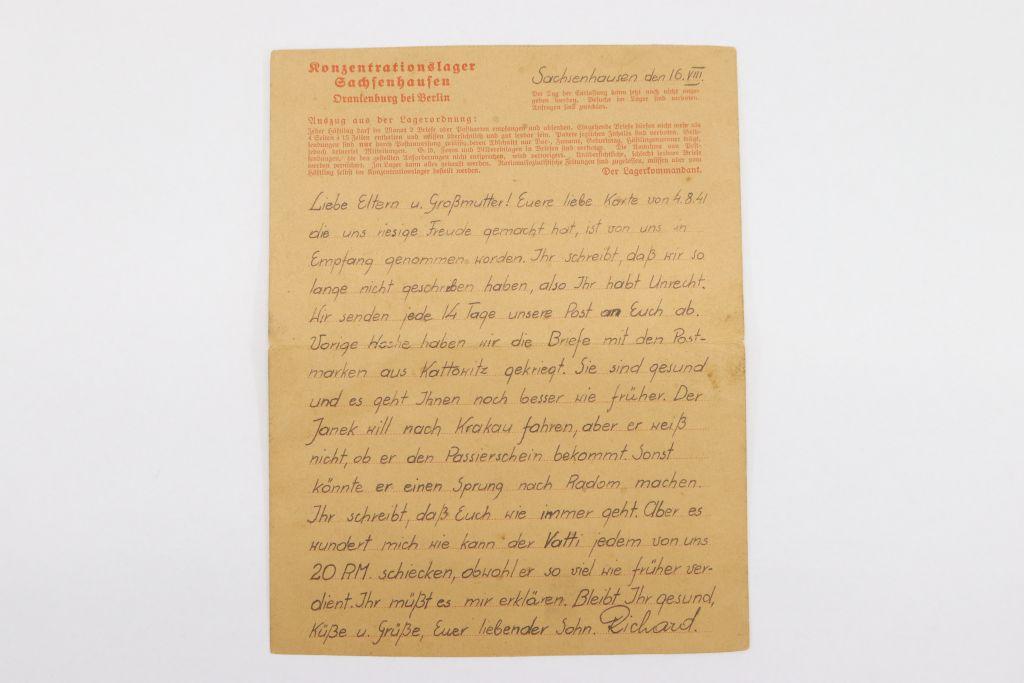 Konzentrationslager
Sachsenhausen
Oranienburg bei Berlin
Sachsenhausen den 16. VIII.
Der Tag der Entlassung kann jetzt noch nicht ange-
geben werden. Besuche im Lager sind verboten.
Anfragen sind zwecklos.
Auszug aus der Lagerordnung:
Jeder Häftling darf im Monat 2 Briefe oder Postkarten empfangen und absenden. Eingehende Briefe dürfen nicht mehr als
4 Seiten à 15 Zeilen enthalten und müssen übersichtlich und gut lesbar sein. Pakete jeglichen Inhalts sind verboten. Geld-
sendungen sind nur durch Postanweisung zulässig, deren Abschnitt nur Vor-, Zuname, Geburtstag, Häftlingsnummer trägt,
jedoch keinerlei Mitteilungen. Geld, Fotos und Bildereinlagen in Briefen sind verboten. Die Annahme von Post-
sendungen, die den gestellten Anforderungen nicht entsprechen, wird verweigert. Unübersichtliche, schlecht lesbare Briefe
werden vernichtet. Im Lager kann alles gekauft werden. Nationalsozialistische Zeitungen sind zugelassen, müssen aber vom
Häftling selbst im Konzentrationslager bestellt werden.
Der Lagerkommandant.
Liebe Eltern u. Großmutter! Euere liebe Karte von 4.8.41
die uns riesige Freude gemacht hat, ist von uns in
Empfang genommen worden. Ihr schreibt, daß wir so
lange nicht geschrieben haben, also Ihr habt Unrecht.
Wir senden jede 14 Tage unsere Post an Euch ab.
Vorige Woche haben wir die Briefe mit den Post-
marken aus Kattowitz gekriegt. Sie sind gesund
und es geht Ihnen noch besser wie früher. Der
Janek will nach Krakau fahren, aber er weiß
nicht, ob er den Passierschein bekommt. Sonst
könnte er einen Sprung nach Radom machen.
Ihr schreibt, daß Euch wie immer geht. Aber es
wundert mich wie kann der Vatti jedem von uns
20 RM. schiecken, obwohl er so viel wie früher ver-
dient. Ihr müßt es mir erklären. Bleibt Ihr gesund,
Küße u. Grüße, Euer liebender Sohn. Richard.